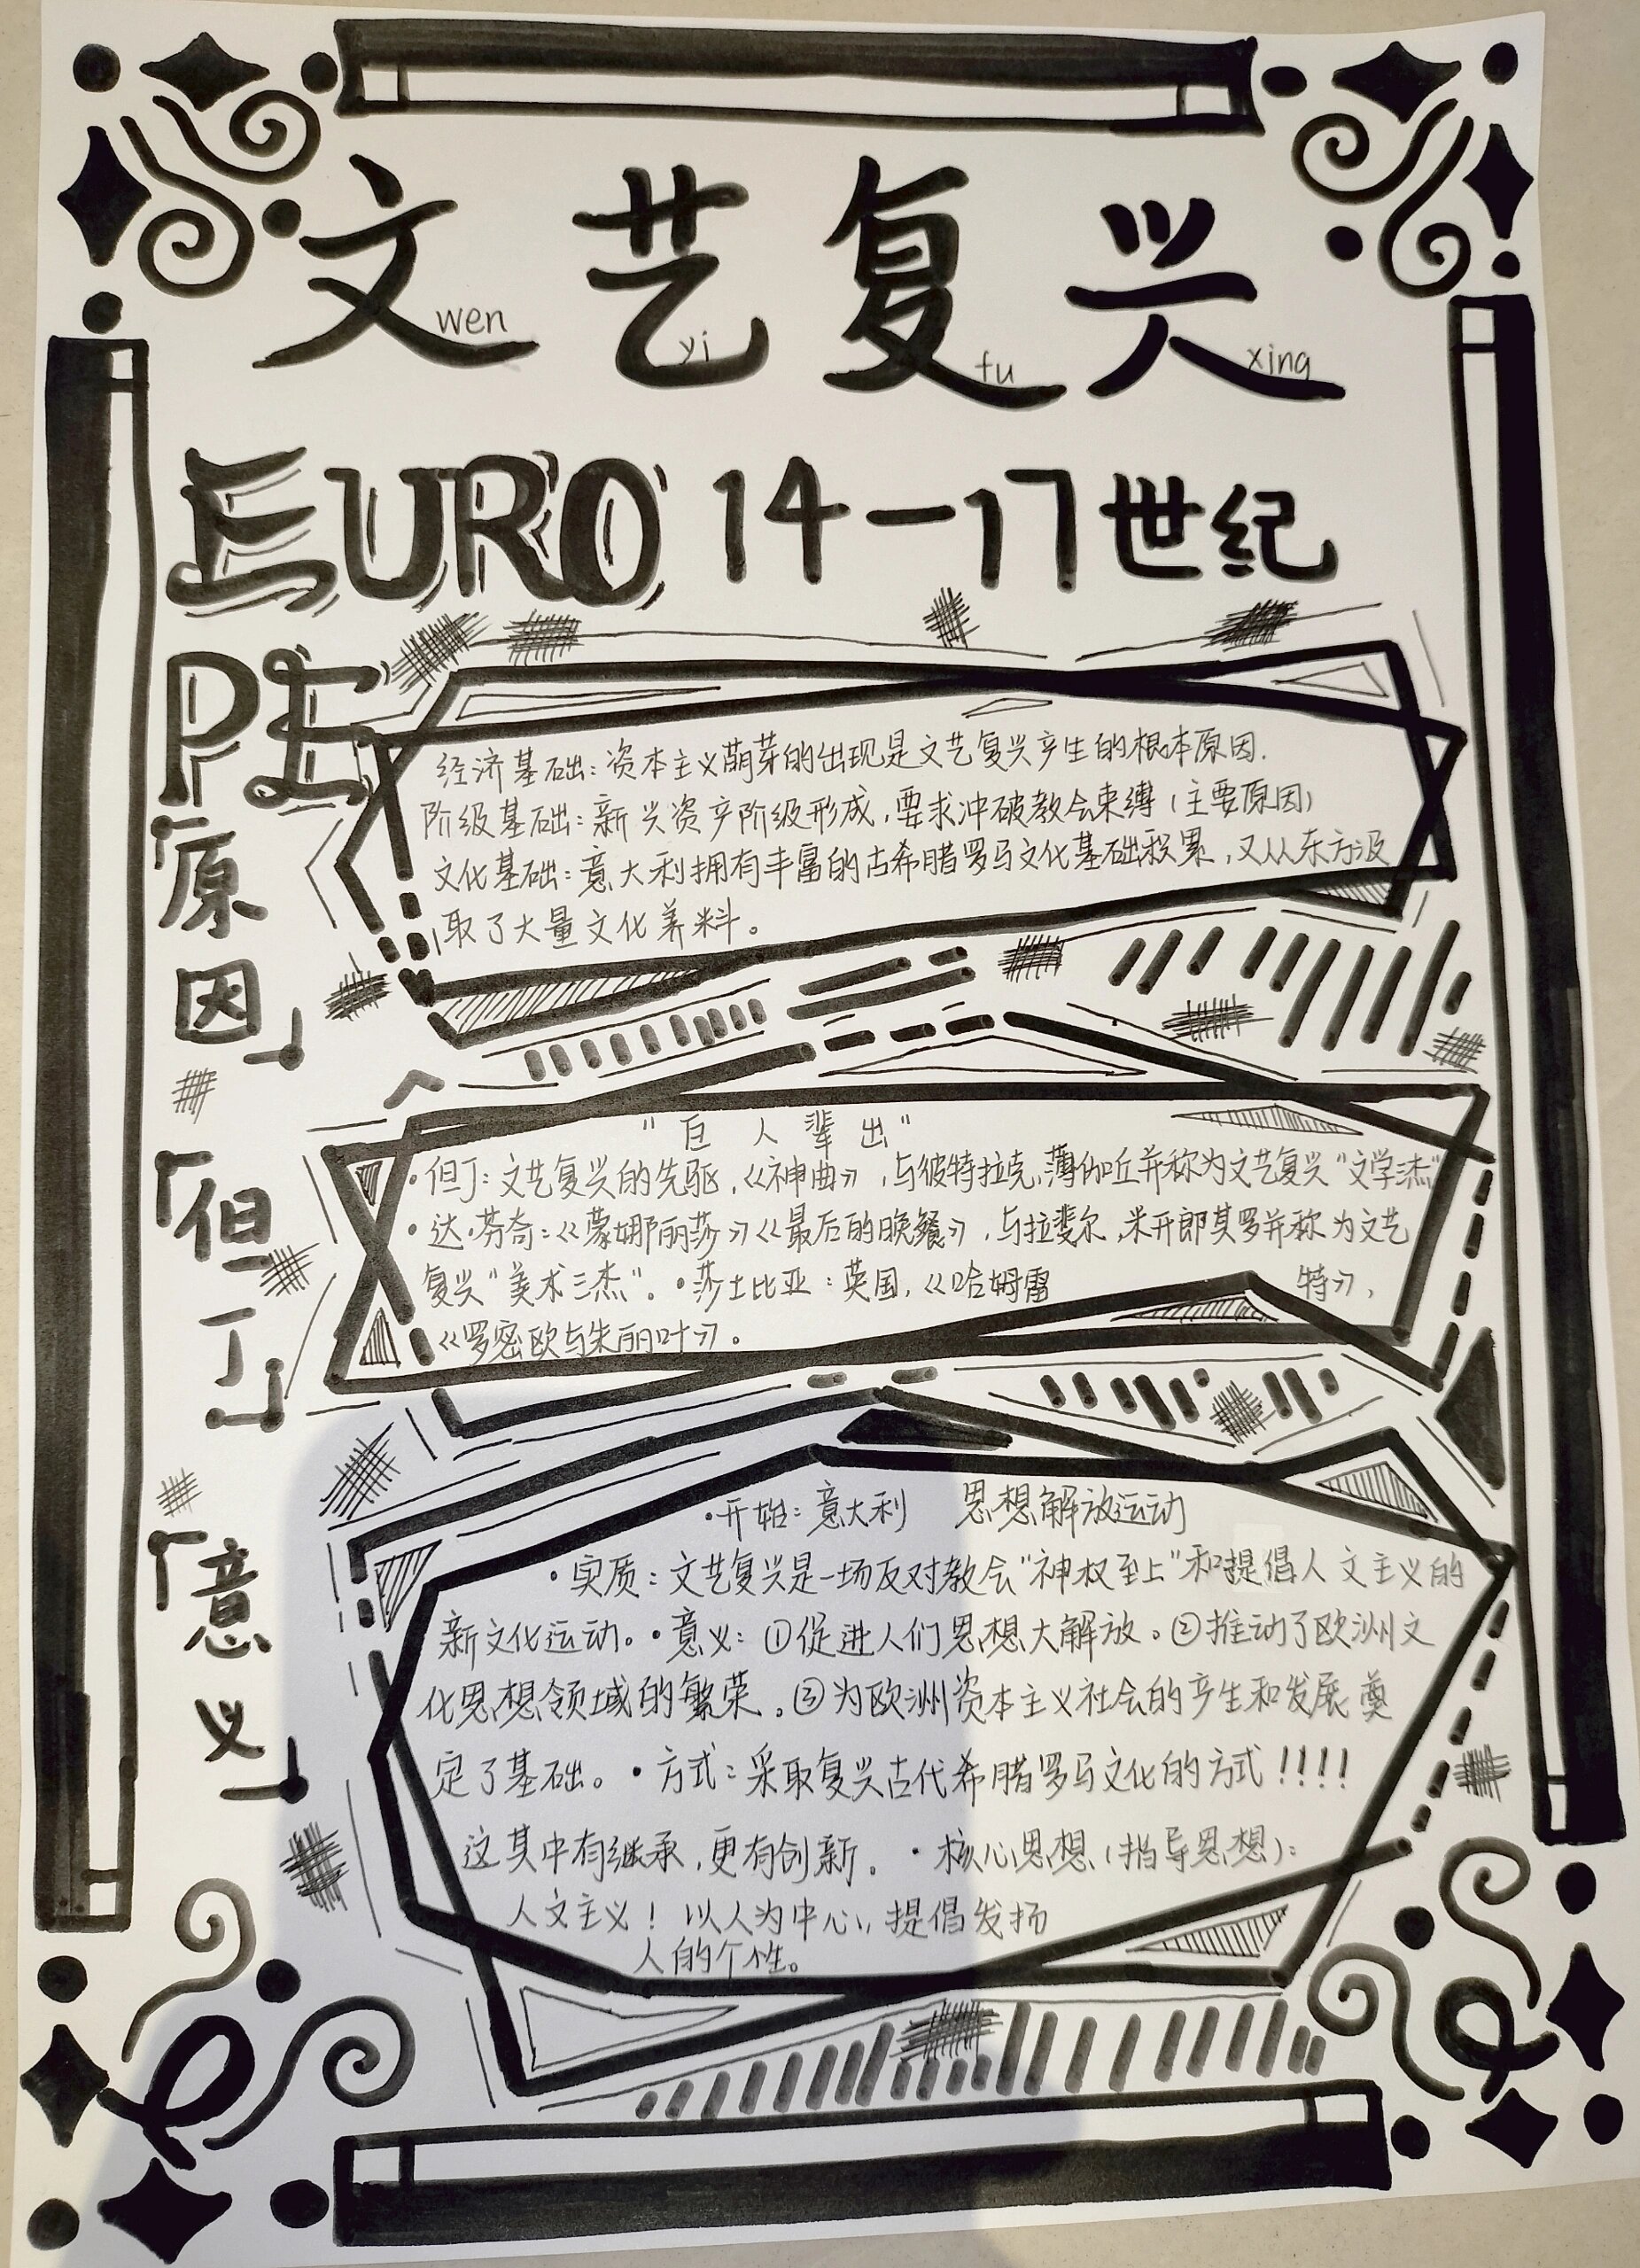 文艺复兴
wen yi fu xing
EURO 14—17世纪
PE
「原因」
经济基础：资本主义萌芽的出现是文艺复兴产生的根本原因.
阶级基础：新兴资产阶级形成，要求冲破教会束缚（主要原因）
文化基础：意大利拥有丰富的古希腊罗马文化基础积累，又从东方汲
取了大量文化养料。
「但丁」
"巨人辈出"
·但丁：文艺复兴的先驱，《神曲》，与彼特拉克，薄伽丘并称为文艺复兴"文学三杰"
·达·芬奇：《蒙娜丽莎》《最后的晚餐》，与拉斐尔，米开郎其罗并称为文艺
复兴"美术三杰"。·莎士比亚：英国，《哈姆雷特》，
《罗密欧与朱丽叶》。
「意义」
·开始：意大利 思想解放运动
·实质：文艺复兴是一场反对教会"神权至上"和提倡人文主义的
新文化运动。·意义：①促进人们思想大解放。②推动了欧洲文
化思想领域的繁荣。③为欧洲资本主义社会的产生和发展奠
定了基础。·方式：采取复兴古代希腊罗马文化的方式!!!!
这其中有继承，更有创新。·核心思想（指导思想）：
人文主义！以人为中心，提倡发扬
人的个性。